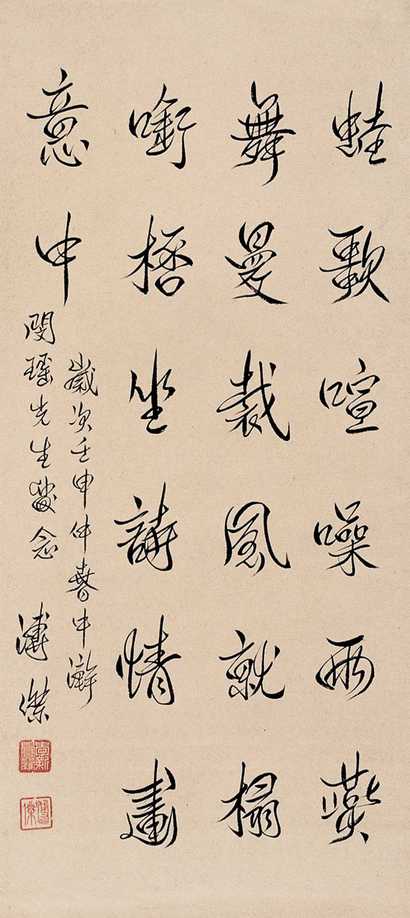 蛙歌喧噪雨燕
舞曼裁風就榻
啣桮坐詩情畫
意中
歲次壬申仲春中澣
先生念
溥傑